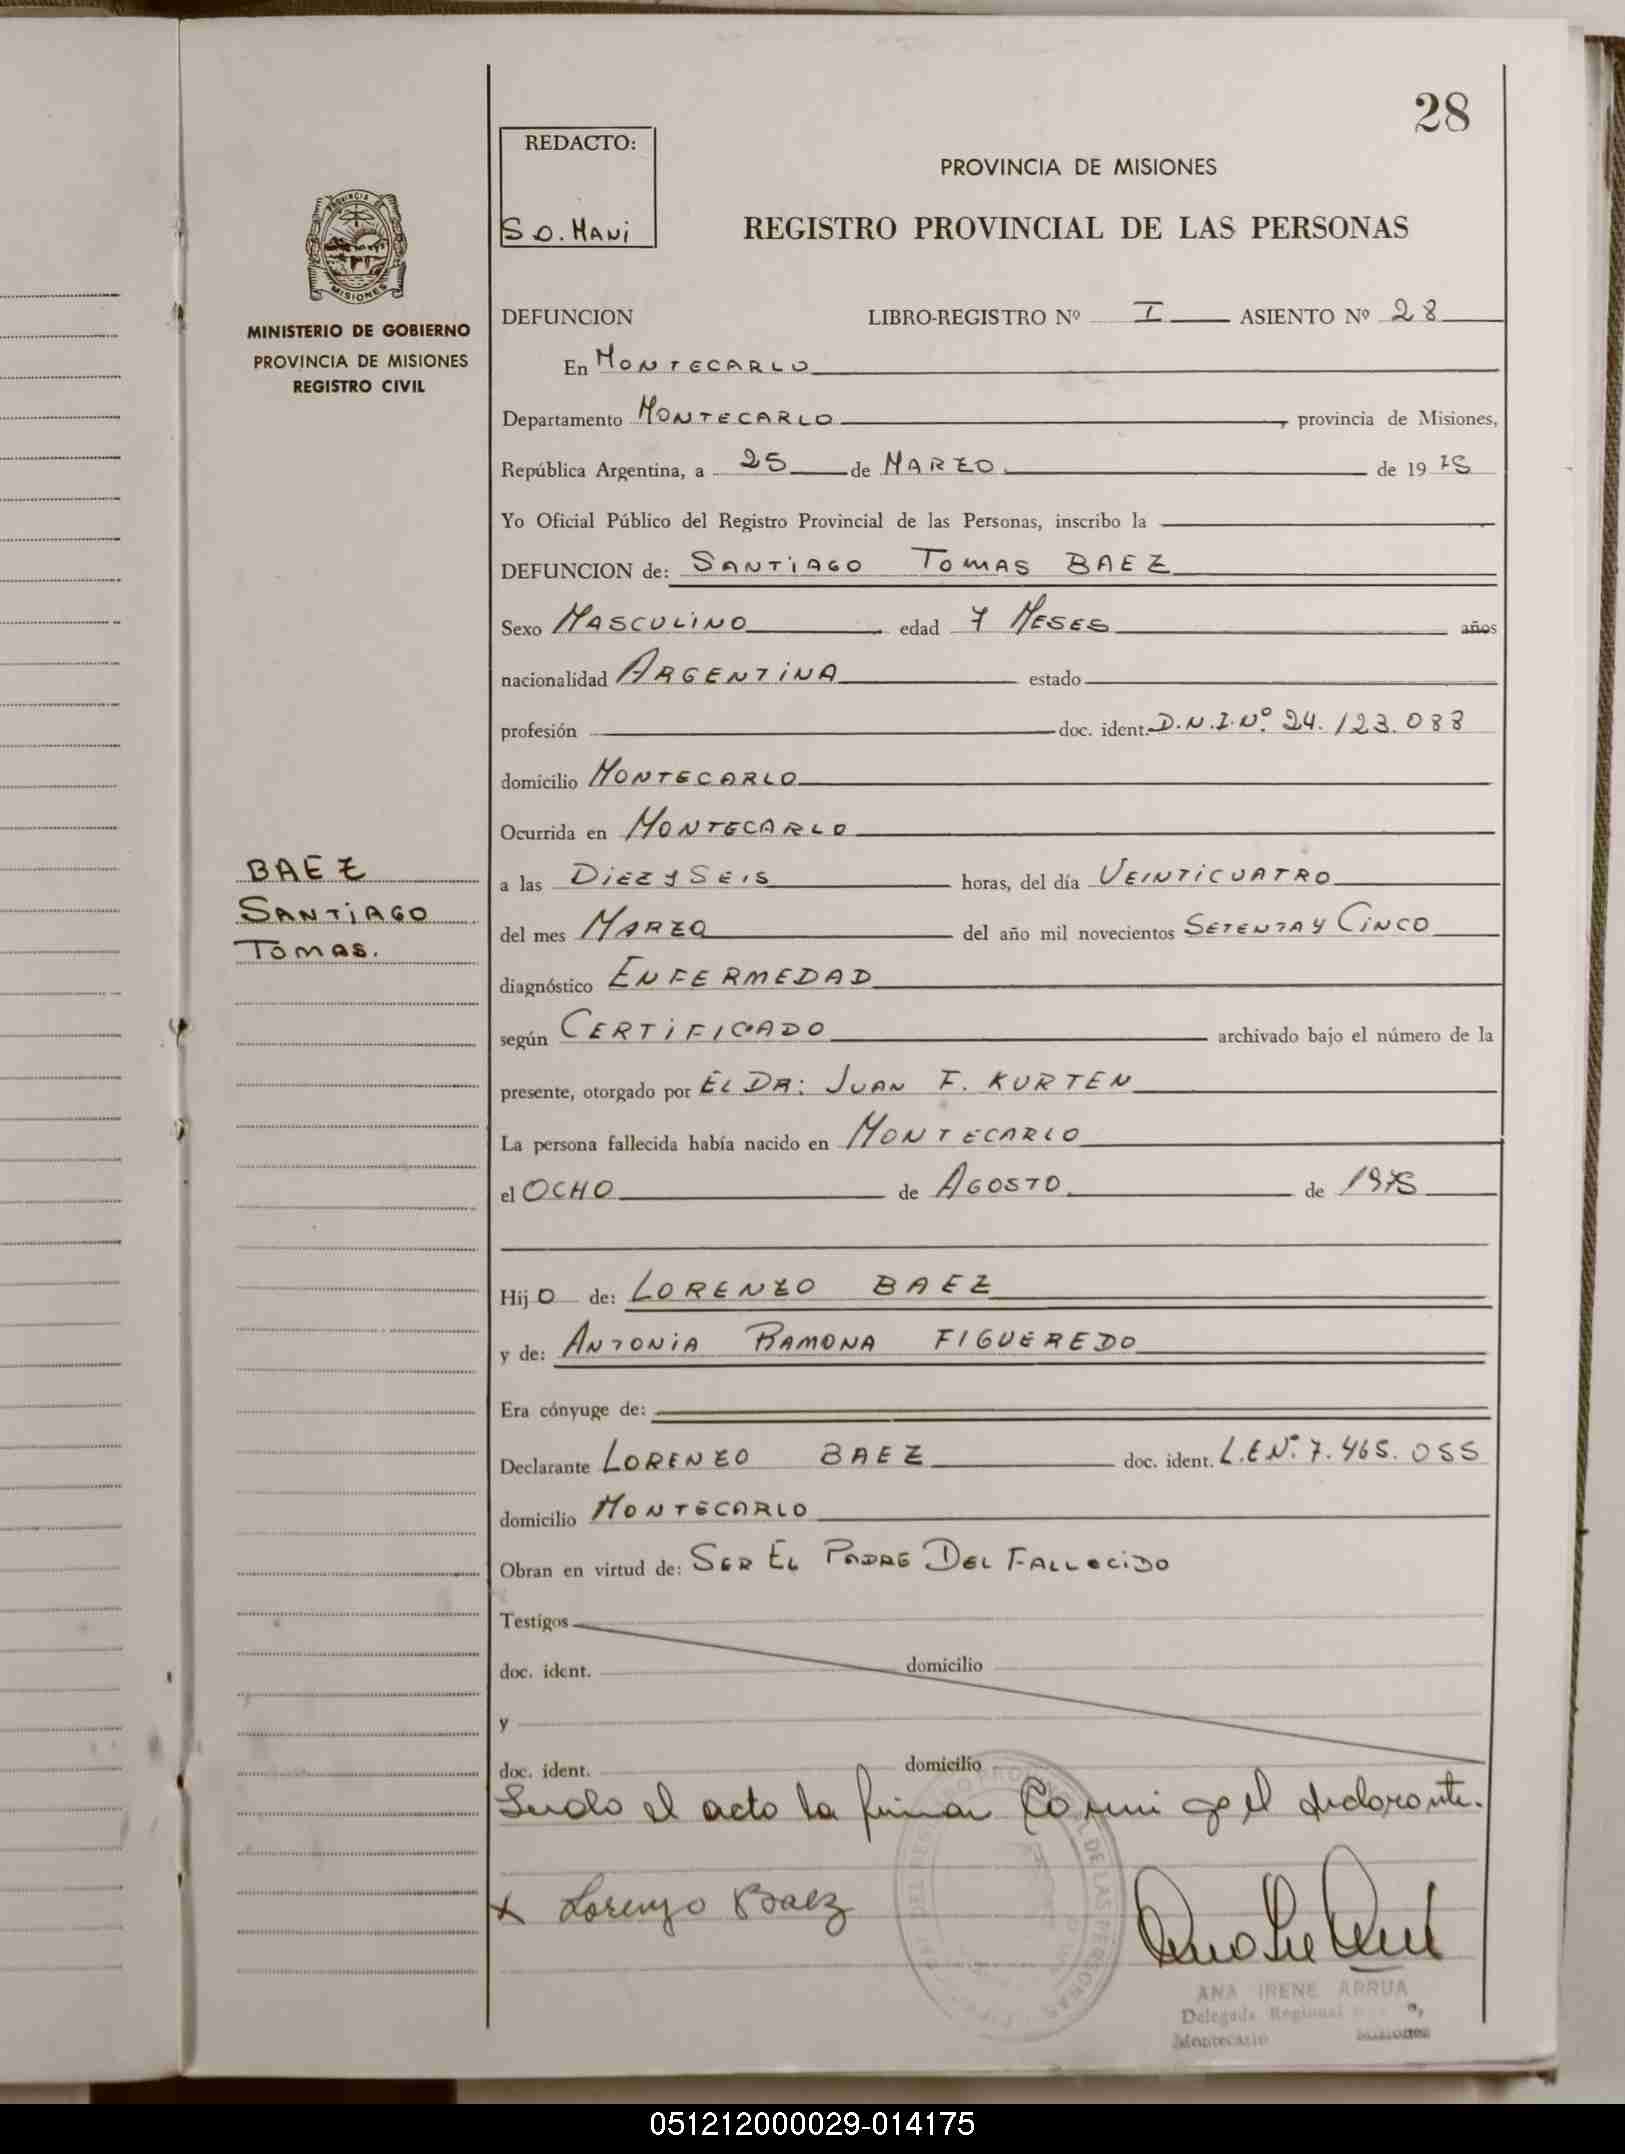 28
REDACTO:
S.O. MANI
PROVINCIA DE MISIONES
REGISTRO PROVINCIAL DE LAS PERSONAS
PROVINCIA DE
MISIONES
MINISTERIO DE GOBIERNO
PROVINCIA DE MISIONES
REGISTRO CIVIL
BAEZ
SANTIAGO
TOMAS.
DEFUNCION LIBRO-REGISTRO Nº I ASIENTO Nº 28
En MONTECARLO
Departamento MONTECARLO, provincia de Misiones,
República Argentina, a 25 de MARZO de 19 75
Yo Oficial Público del Registro Provincial de las Personas, inscribo la
DEFUNCION de: SANTIAGO TOMAS BAEZ
Sexo MASCULINO edad 7 MESES años
nacionalidad ARGENTINA estado
profesión doc. ident. D.N.I.Nº. 24.123.088
domicilio MONTECARLO
Ocurrida en MONTECARLO
a las DIEZ y SEIS horas, del día VEINTICUATRO
del mes MARZO del año mil novecientos SETENTA Y CINCO
diagnóstico ENFERMEDAD
según CERTIFICADO archivado bajo el número de la
presente, otorgado por EL DR: JUAN F. KURTEN
La persona fallecida había nacido en MONTECARLO
el OCHO de AGOSTO de 1975
Hij O de: LORENZO BAEZ
y de: ANTONIA RAMONA FIGUEREDO
Era cónyuge de:
Declarante LORENZO BAEZ doc. ident. L.E Nº. 7.465.055
domicilio MONTECARLO
Obran en virtud de: SER EL PADRE DEL FALLECIDO
Testigos
doc. ident. domicilio
y
doc. ident. domicilio
el acto la firman declarante.
x Lorenzo Baez
ANA IRENE ARRUA
Delegada Regional
Montecarlo Misiones
051212000029-014175